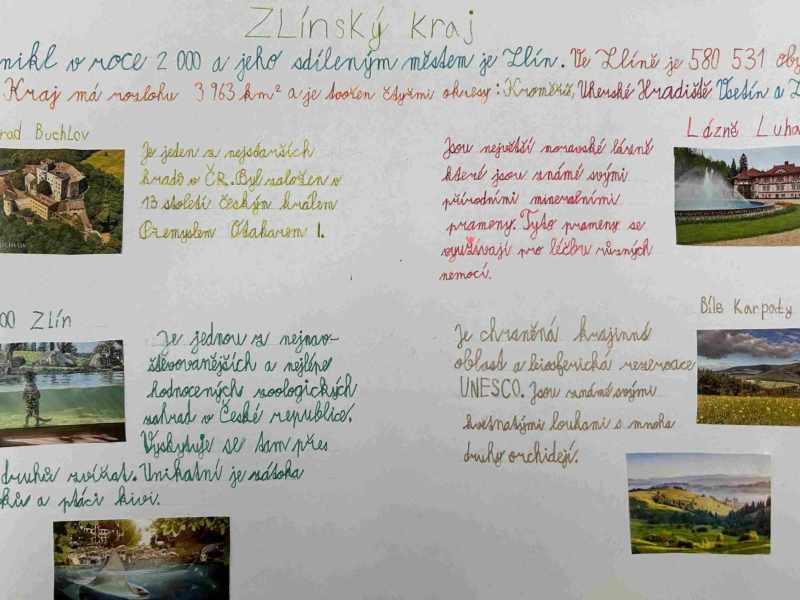 ZLínský kraj
nikl v roce 2 000 a jeho sdíleným městem je Zlín. Ve Zlíně je 580 531 oby
Kraj má rozlohu 3 963 km² a je tvořen čtyřmi okresy: Kroměříž, Uherské Hradiště Vsetín a Z
rad Buchlov
Je jeden z nejstarších
hradů v ČR. Byl založen v
13 století českým králem
Přemyslem Otakarem I.
Lázně Luha
Jsou největší moravské lázně
které jsou známé svými
přírodními minerálními
prameny. Tyto prameny se
využívají pro léčbu různých
nemocí.
OO Zlín
Je jednou z nejnav-
štěvovanějších a nejlépe
hodnocených zoologických
zahrad v České republice.
Vyskytuje se tam přes
druhů zvířat. Unikátní je zátoka
oků a ptáci kivi.
Bíle Karpaty
Je chraněná krajinná
oblast a biosferická rezervace
UNESCO. Jsou známé svými
květnatými loukami s mnoha
druhy orchidejí.